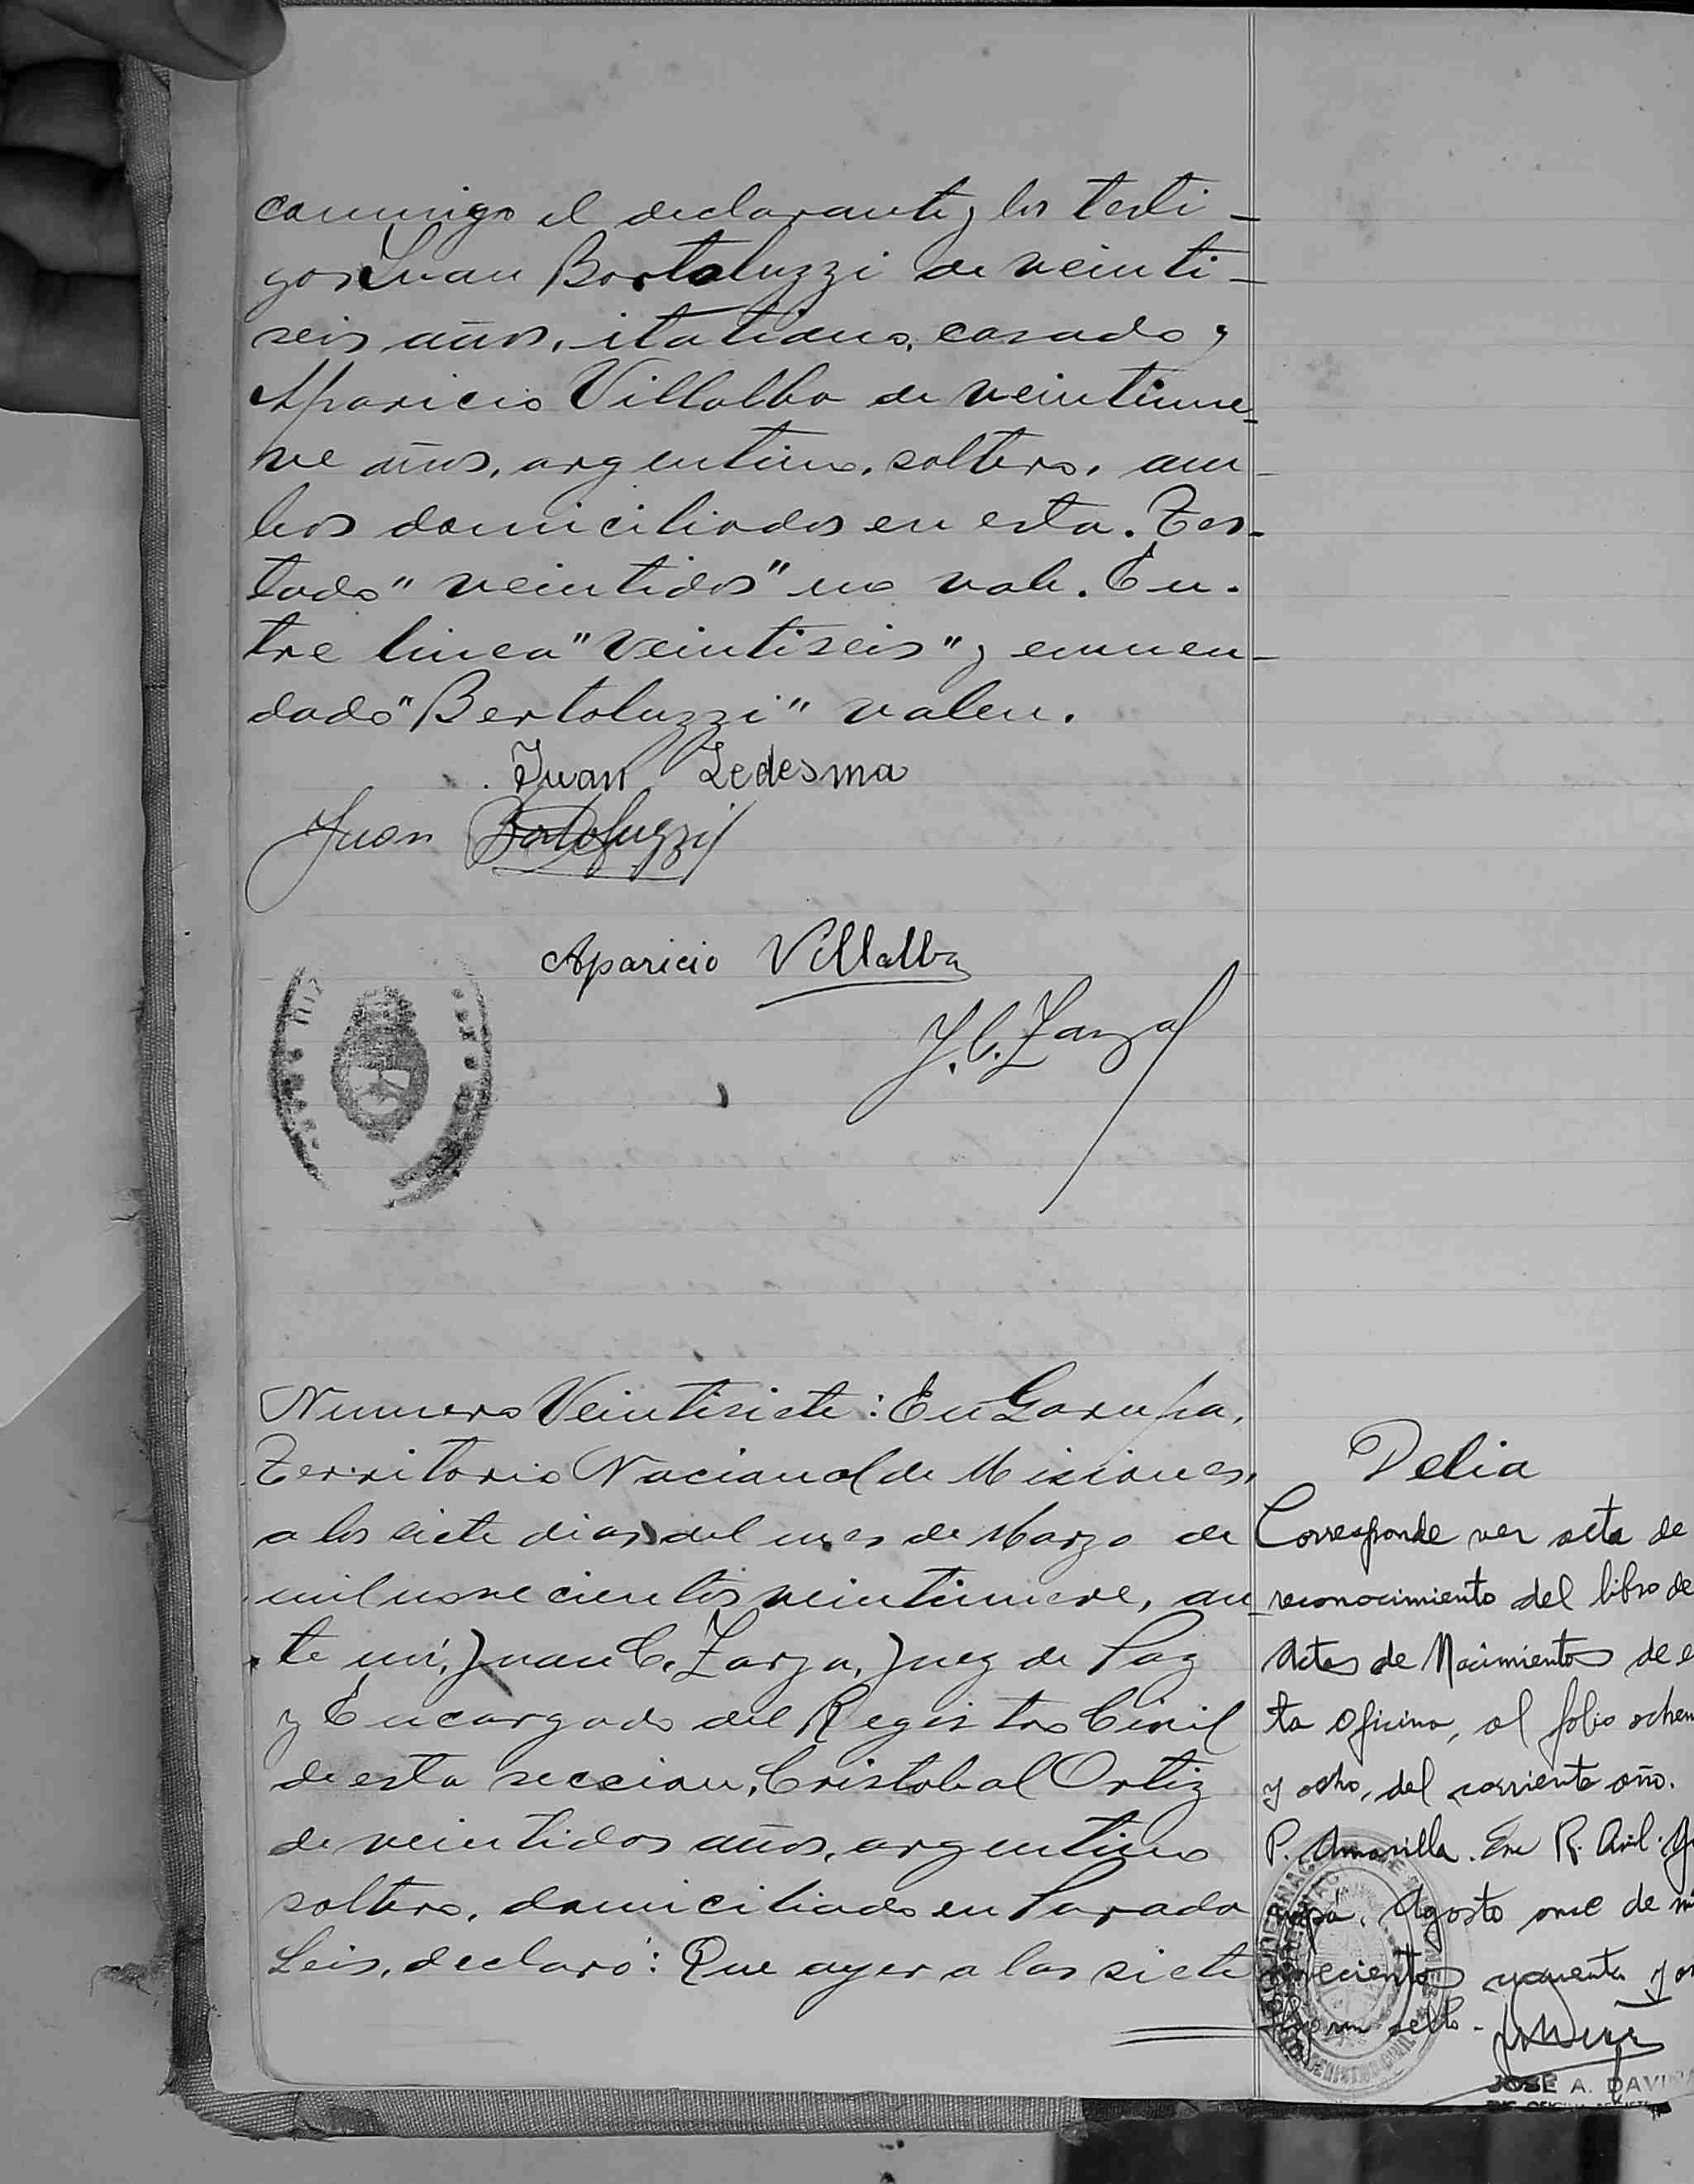 conmigo el declarante y los testi-
gos Juan Bortoluzzi de veinti-
seis años, italiano, casado y
Aparicio Villalba de veintinue-
ve años, argentino, soltero, am-
bos domiciliados en esta. Tes-
tado "veintidos" no vale. En-
tre linea "veintiseis" y enmen-
dado "Bertoluzzi" valen.
Juan Ledesma
Juan Bortoluzzi
Aparicio Villalba
J. C. Zarza
Numero Veintisiete: En Garupa,
Territorio Nacional de Misiones,
a los siete dias del mes de Marzo de
mil novecientos veintinueve, an-
te mi, Juan C. Zarza, Juez de Paz
y Encargado del Registro Civil
de esta seccion, Cristobal Ortiz
de veintidos años, argentino
soltero, domiciliado en Parada
Leis, declaró: Que ayer a las siete
Delia
Corresponde ver acta de
reconocimiento del libro de
Actas de Nacimientos de e
ta oficina, al folio ochen
y ocho, del corriente año.
P. Amarilla. Enc R. Civil. Ga
rupá, Agosto once de mi
novecientos y
sello.-
JOSE A. DAVI